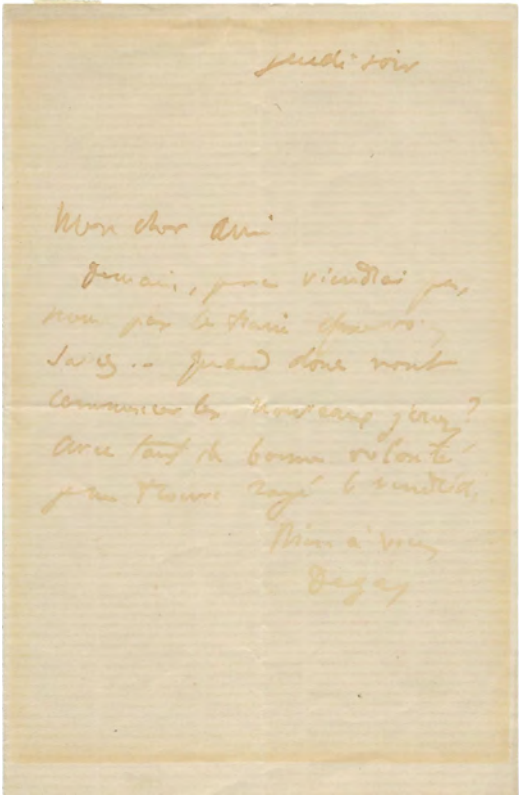 jeudi soir
Mon cher Ami
Demain, je ne viendrai pas,
non par le
quand donc vont
commencer les nouveaux jours?
Avec tant de bonne volonté
je me trouve rayé le vendredi.
Bien à vous
Degas